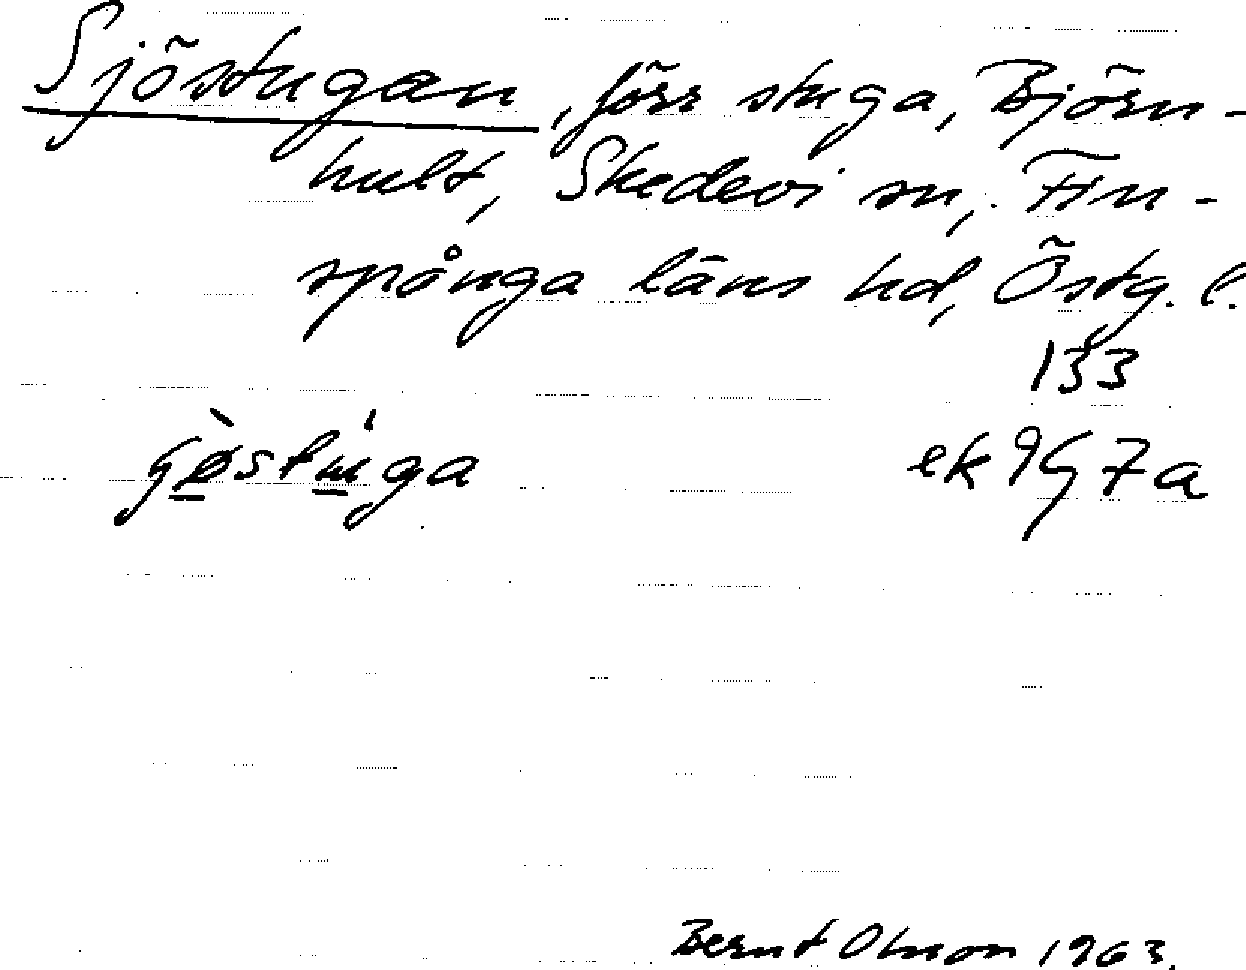 Sjöstugan, förr stuga, Björn-
hult, Skedevi sn, Fin-
spånga läns hd, Östg. l.
133
ek 9G 7a
Bernt Olsson 1963.